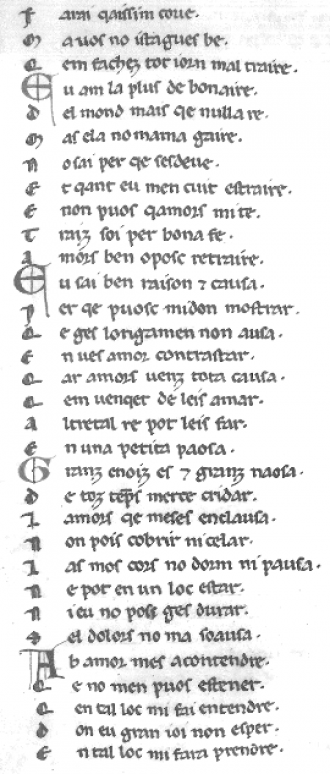 F arai qaissim coue.
M a uos no istagues be.
Q em fachez tot iorn mal traire.
E u am la plus de bonaire.
D el mond mais qe nulla re.
M as ela no mama gaire.
N o sai per qe sesdeue.
E t qant eu men cuit estraire.
E non puos qamors mi te.
T raiz soi per bona fe.
A mors ben oposc retraire.
E u sai ben raison ⁊ causa.
P er qe puosc midon mostrar.
Q e ges lonigamen non ausa.
E n ues amor contrastar.
Q ar amors uenz tota causa.
Q em uenqet de leis amar.
A ltretal re pot leis far.
E n una petita paosa.
G ranz enoiz es ⁊ granz naosa.
D e toz temps merce cridar.
L amors qe meses enclausa.
N on pois cobrir ni celar.
L as mos cors no dorm ni pausa.
N e pot en un loc estar.
N i eu no posc ges durar.
S el dolors no ma soausa.
A b amor mes acontendre.
Q e no men puos estener.
Q en tal loc mi fai entendre.
D on eu gran ioi non esper.
E n tal loc mi fara prendre.